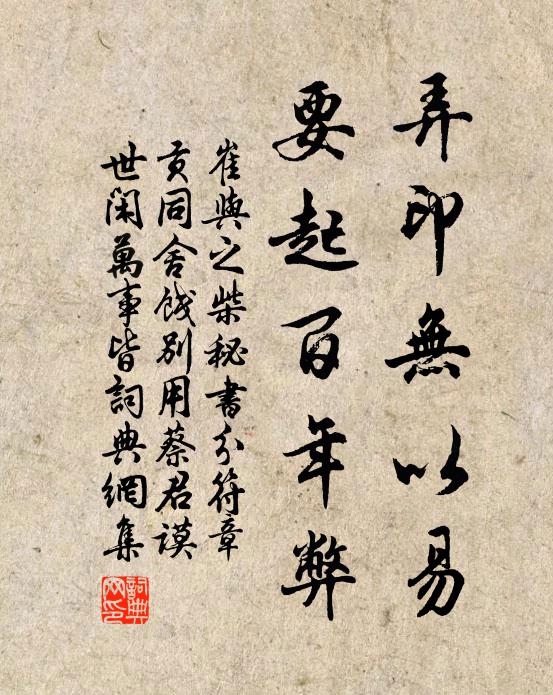 弄印無以易
要起百年弊
崔與之柴秘書分符章
貢同舍餞別用蔡君謨
世閑萬事皆詞典網集
詞典網印